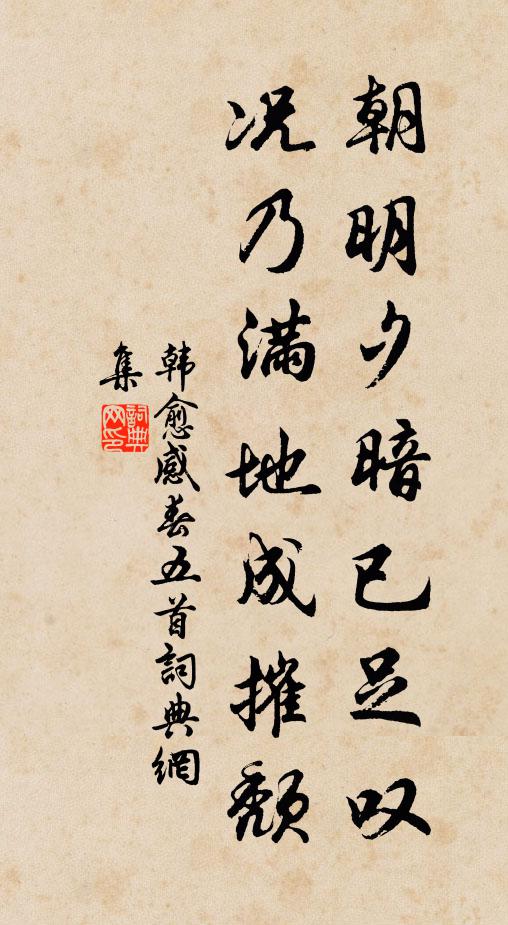 朝明夕暗已足叹
况乃满地成摧颓
韩愈感春五首詞典網
集
詞典网印